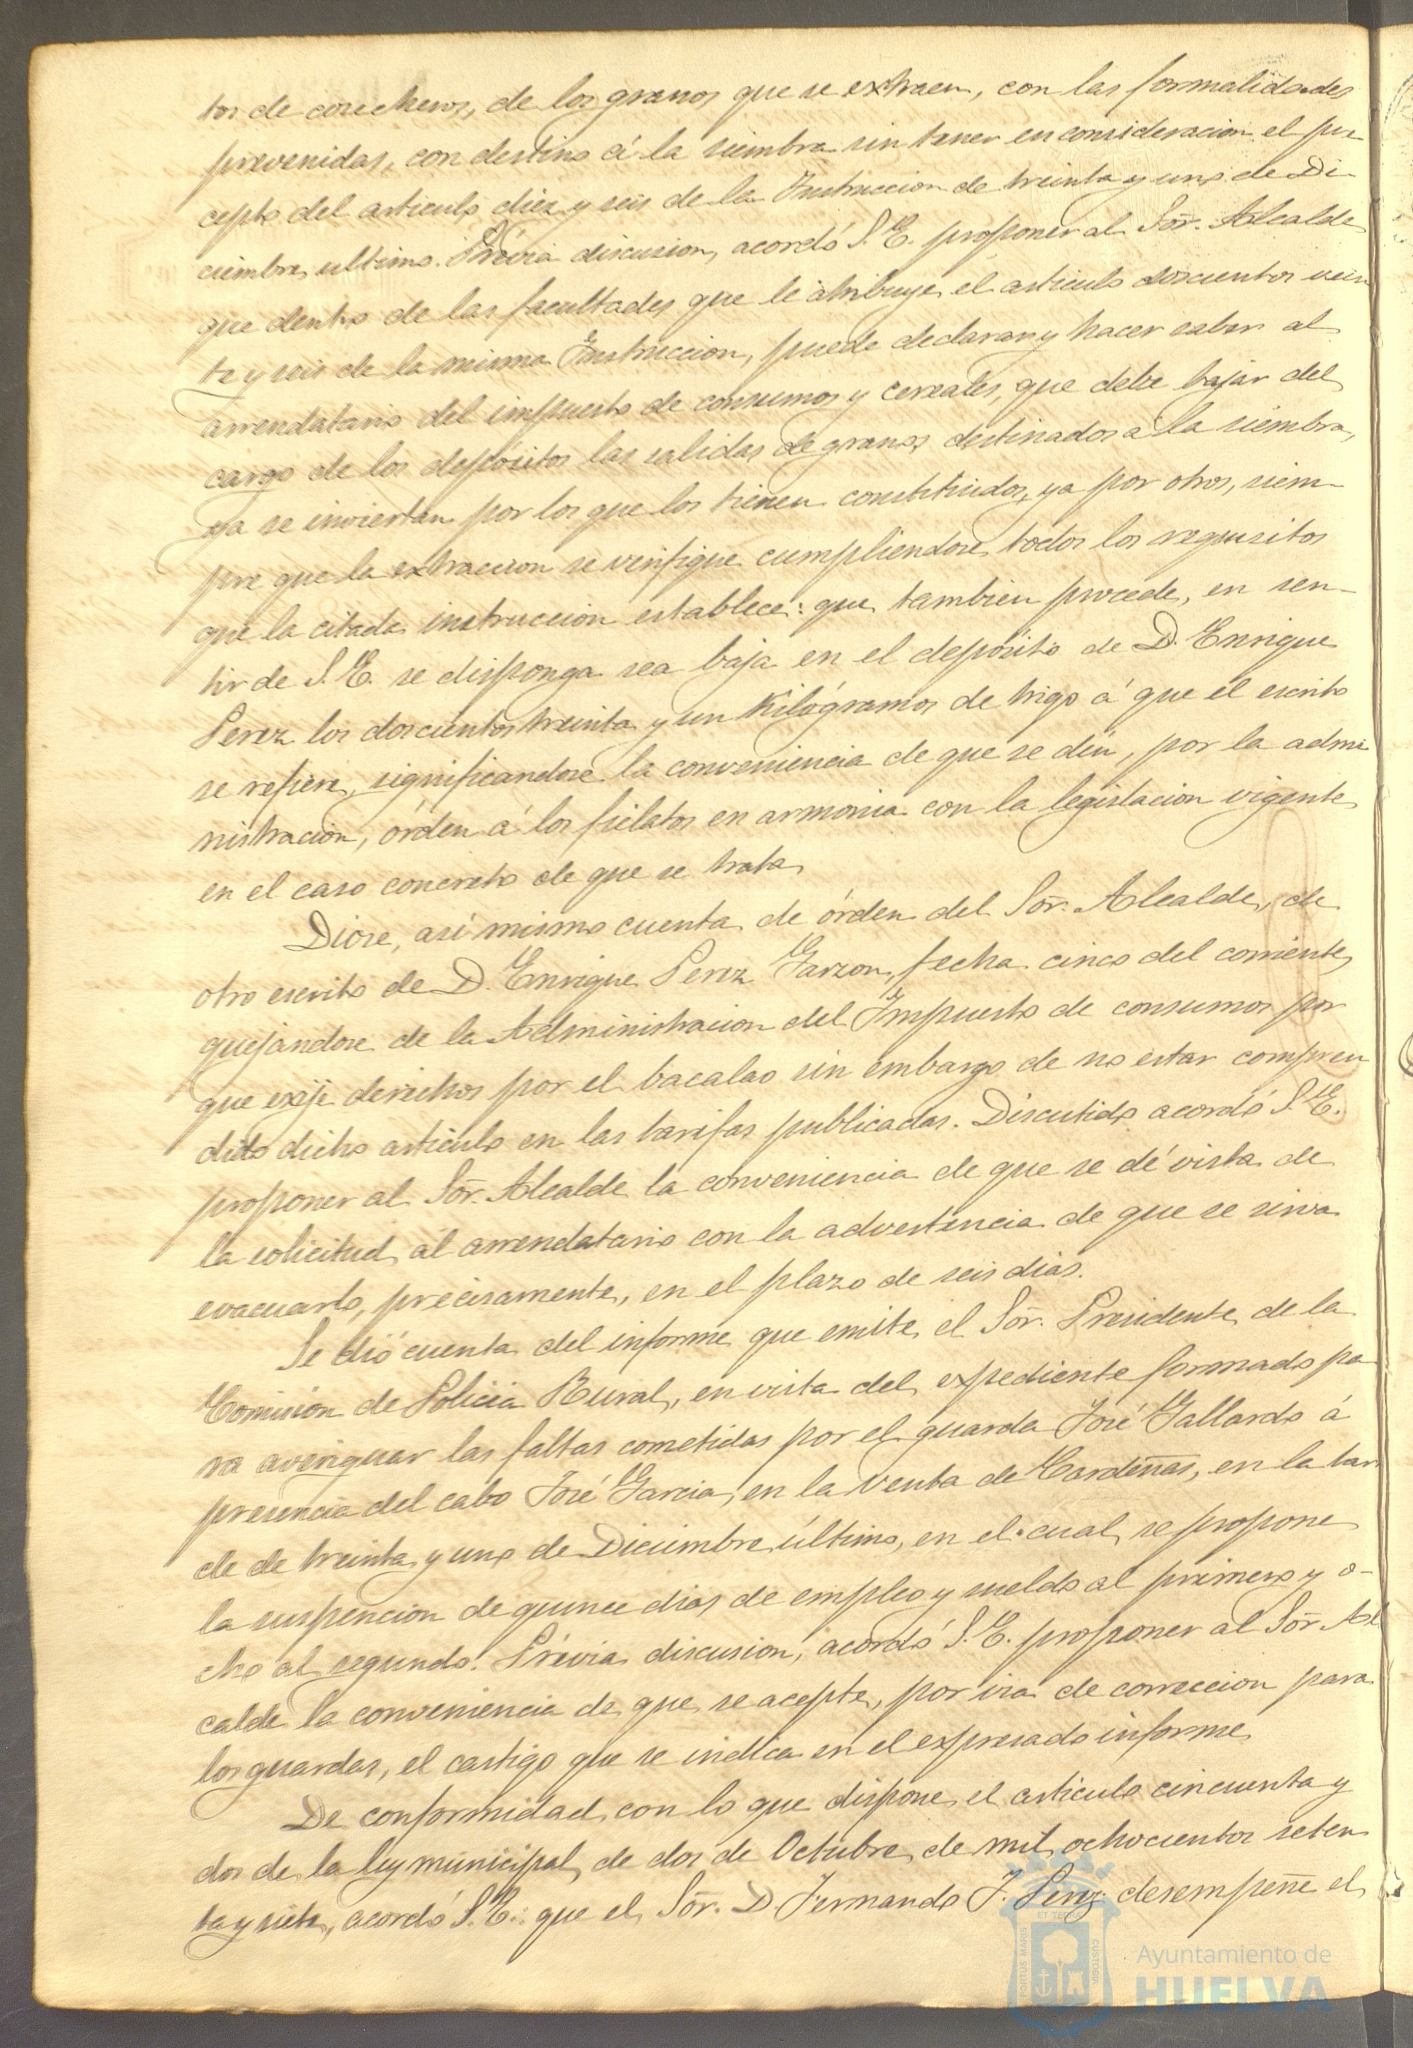 tos de cosecheros, de los granos que se extraen, con las formalidades
prevenidas, con destino á la siembra sin tener en consideracion el pre-
cepto del articulo diez y seis de la Instruccion de treinta y uno de Di-
ciembre ultimo. Prévia discusion, acordó S. E. proponer al Sõr. Alcalde
que dentro de las facultades que le atribuye el articulo doscientos vein
te y seis de la misma Instruccion, puede declarar y hacer saber al
arrendatario del impuesto de consumos y cereales, que debe bajar del
cargo de los depósitos las salidas de granos destinados a la siembra,
ya se inviertan por los que los tienen constituidos, ya por otros, siem-
pre que la extraccion se verifique cumpliendose todos los requisitos
que la citada instruccion establece: que tambien procede, en sen-
tir de S. E. se disponga sea baja en el depósito de D. Enrique
Perez los doscientos treinta y un Kilógramos de trigo á que el escrito
se refiere, significandose la conveniencia de que se den, por la admi
nistracion, órden á los fielatos en armonia con la legislacion vigente
en el caso concreto de que se trata.
Diose, así mismo cuenta de órden del Sõr. Alcalde, de
otro escrito de D. Enrique Perez Garzon, fecha cinco del corriente,
quejándose de la Administracion del Impuesto de consumos por
que exije derechos por el bacalao sin embargo de no estar compren
dido dicho articulo en las tarifas publicadas. Discutido acordó S. E.
proponer al Sõr. Alcalde la conveniencia de que se dé vista de
la solicitud al arrendatario con la advertencia de que se sirva
evacuarlo, precisamente, en el plazo de seis dias.
Se dió cuenta del informe que emite el Sõr. Presidente de la
Comisión de Policia Rural, en vista del expediente formado pa
ra averiguar las faltas cometidas por el guarda José Gallardo á
presencia del cabo José Garcia, en la venta de Cardeñas, en la tar
de de treinta y uno de Diciembre último, en el cual se propone
la suspencion de quince dias de empleo y sueldo al primero y o-
cho al segundo. Prévia discusion, acordó S. E. proponer al Sõr Al
calde la conveniencia de que se acepte, por via de correccion para
los guardas, el castigo que se indica en el expresado informe.
De conformidad con lo que dispone el articulo cincuenta y
dos de la ley municipal de dos de Octubre de mil ochocientos seten
ta y siete, acordó S. E.: que el Sõr. D. Fernando J. Perez desempeñe el
ET TERRA
PORTUS MARIS
CUSTODIA
Ayuntamiento de
HUELVA